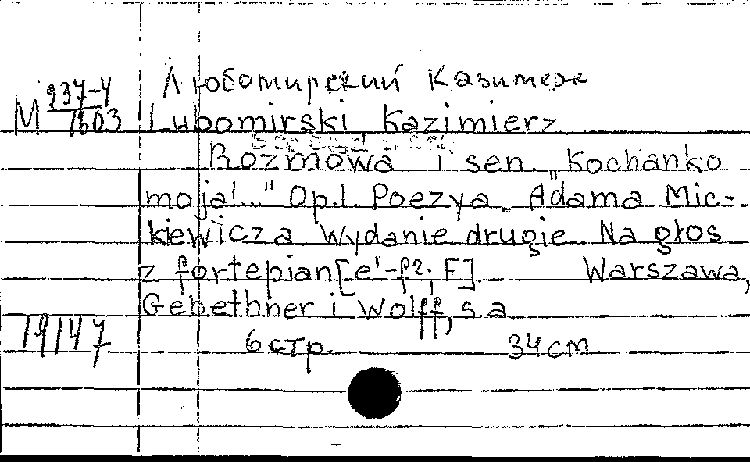 Любомирский Казимеж
М 237-4/1603
Lubomirski, Kazimierz
Rozmowa i sen. „Kochanko
moja!..." Op.1. Poezya Adama Mic-
kiewicza Wydanie drugie. Na głos
z fortepian[e¹-f2; F] Warszawa,
Gebethner i Wolff, s.a
19147
6 стр 34 cm